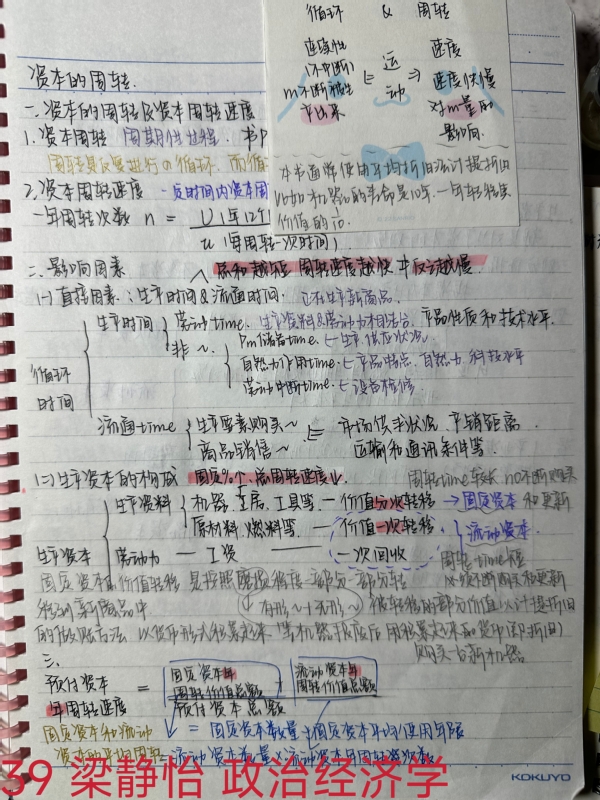 循环 & 周转
连续性 运动 速度
(不中断) 速度快慢
对m量的
影响
本书通常使用平均折旧法计提折旧
比如机器的寿命是10年.一年转移其
价值的1/10.
资本的周转
一.资本的周转及资本周转速度
1.资本周转 周期性过程.
周转是反复进行の循环.而循
2.资本周转速度 一定时间内资本周
一年周转次数 n = U(1年12个
u (每周转一次时间)
二.影响因素 总和越短 周转速度越快 反之越慢.
(一)直接因素:生产时间&流通时间.
生产时间 劳动time.生产资料&劳动力相结合.产品性质和技术水平.
非~ Pm储备time.生产供应状况
循环 自然力作用time.产品特点.自然力.科技水平
时间 劳动中断time.设备检修.
流通time 生产要素购买~ 市场供求状况.产销距离
商品销售~ 运输和通讯条件等.
(二)生产资本的构成 固定%↑.总周转速度↓. 周转time较长 no不断购买
生产资料 机器.工房.工具等.一价值分次转移→固定资本 和更新
原材料.燃料等.一价值一次转移 流动资本.
生产资本 劳动力 — 工资 一次回收 周转time短
固定资本の价值转移 是按照磨损程度一部分一部分转 不断购买和更新
移到新商品中 有形~+无形~ 被转移的部分价值以计提折旧
的做账方法 以货币形式积累起来.等机器报废后 用积累起来的货币(即折旧)
购买台新机器
三.
预付资本 = 固定资本年周转价值总额 + 流动资本年周转价值总额
年周转速度 预付资本总额
固定资本和流动 = 固定资本数量÷固定资本平均使用年限
资本的平均周转 流动资本数量×流动资本年周转次数
39 梁静怡 政治经济学
KOKUYO